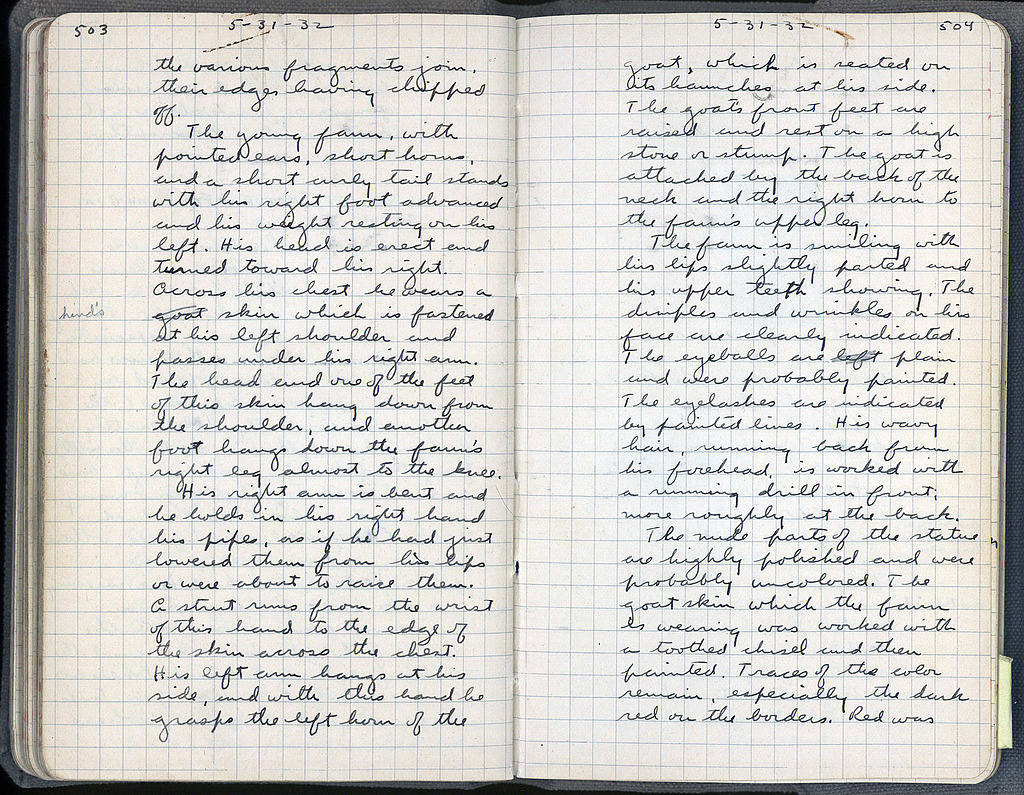 503
5-31-32
the various fragments join,
their edges having chipped
off.
The young faun, with
pointed ears, short horns,
and a short curly tail stands
with his right foot advanced
and his weight resting on his
left. His head is erect and
turned toward his right.
Across his chest he wears a
hind's
goat skin which is fastened
at his left shoulder and
passes under his right arm.
The head and one of the feet
of this skin hang down from
the shoulder, and another
foot hangs down the faun's
right leg almost to the knee.
His right arm is bent and
he holds in his right hand
his pipes, as if he had just
lowered them from his lips
or were about to raise them.
A strut runs from the wrist
of this hand to the edge of
the skin across the chest.
His left arm hangs at his
side, and with this hand he
grasps the left horn of the
5-31-32
504
goat, which is seated on
its haunches at his side.
The goat's front feet are
raised and rest on a high
stone or stump. The goat is
attached by the back of the
neck and the right horn to
the faun's upper leg.
The faun is smiling with
his lips slightly parted and
his upper teeth showing. The
dimples and wrinkles on his
face are clearly indicated.
The eyeballs are left plain
and were probably painted.
The eyelashes are indicated
by painted lines. His wavy
hair, running back from
his forehead, is worked with
a running drill in front,
more roughly at the back.
The nude parts of the statue
are highly polished and were
probably uncolored. The
goat skin which the faun
is wearing was worked with
a toothed chisel and then
painted. Traces of the color
remain, especially the dark
red on the borders. Red was